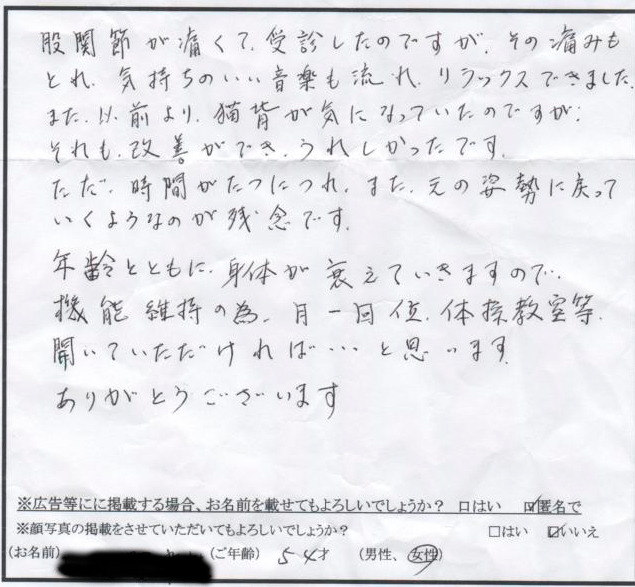 股関節が痛くて、受診したのですが、その痛みも
とれ、気持ちのいい音楽も流れ、リラックスできました。
また、以前より、猫背が気になっていたのですが、
それも、改善ができ、うれしかったです。
ただ、時間がたつにつれ、また、元の姿勢に戻って
いくようなのが残念です。
年齢とともに、身体が衰えていきますので、
機能維持の為、月一回位、体操教室等、
開いていただければ・・・と思います。
ありがとうございます
※広告等にに掲載する場合、お名前を載せてもよろしいでしょうか? □はい ☑匿名で
※顔写真の掲載をさせていただいてもよろしいでしょうか? □はい ☑いいえ
(お名前) (ご年齢) 54才 (男性、女性)